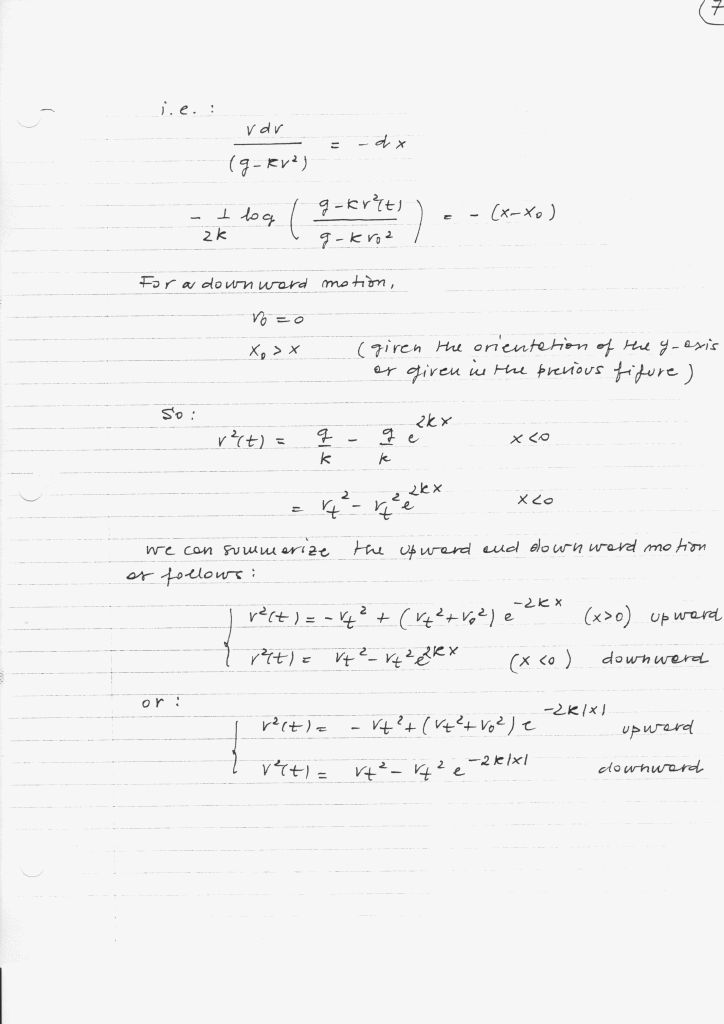 7
i.e. :
v dv / (g - kv²) = - dx
- 1/2k log ( (g - kv²(t)) / (g - kv₀²) ) = - (x - x₀)
For a downward motion,
v₀ = 0
x₀ > x (given the orientation of the y-axis
as given in the previous figure)
So :
v²(t) = g/k - g/k e^{2kx} x < 0
= v_t² - v_t² e^{2kx} x < 0
We can summarize the upward and downward motion
as follows :
{ v²(t) = - v_t² + (v_t² + v₀²) e^{-2kx} (x > 0) upward
v²(t) = v_t² - v_t² e^{2kx} (x < 0) downward
or :
{ v²(t) = - v_t² + (v_t² + v₀²) e^{-2k|x|} upward
v²(t) = v_t² - v_t² e^{-2k|x|} downward